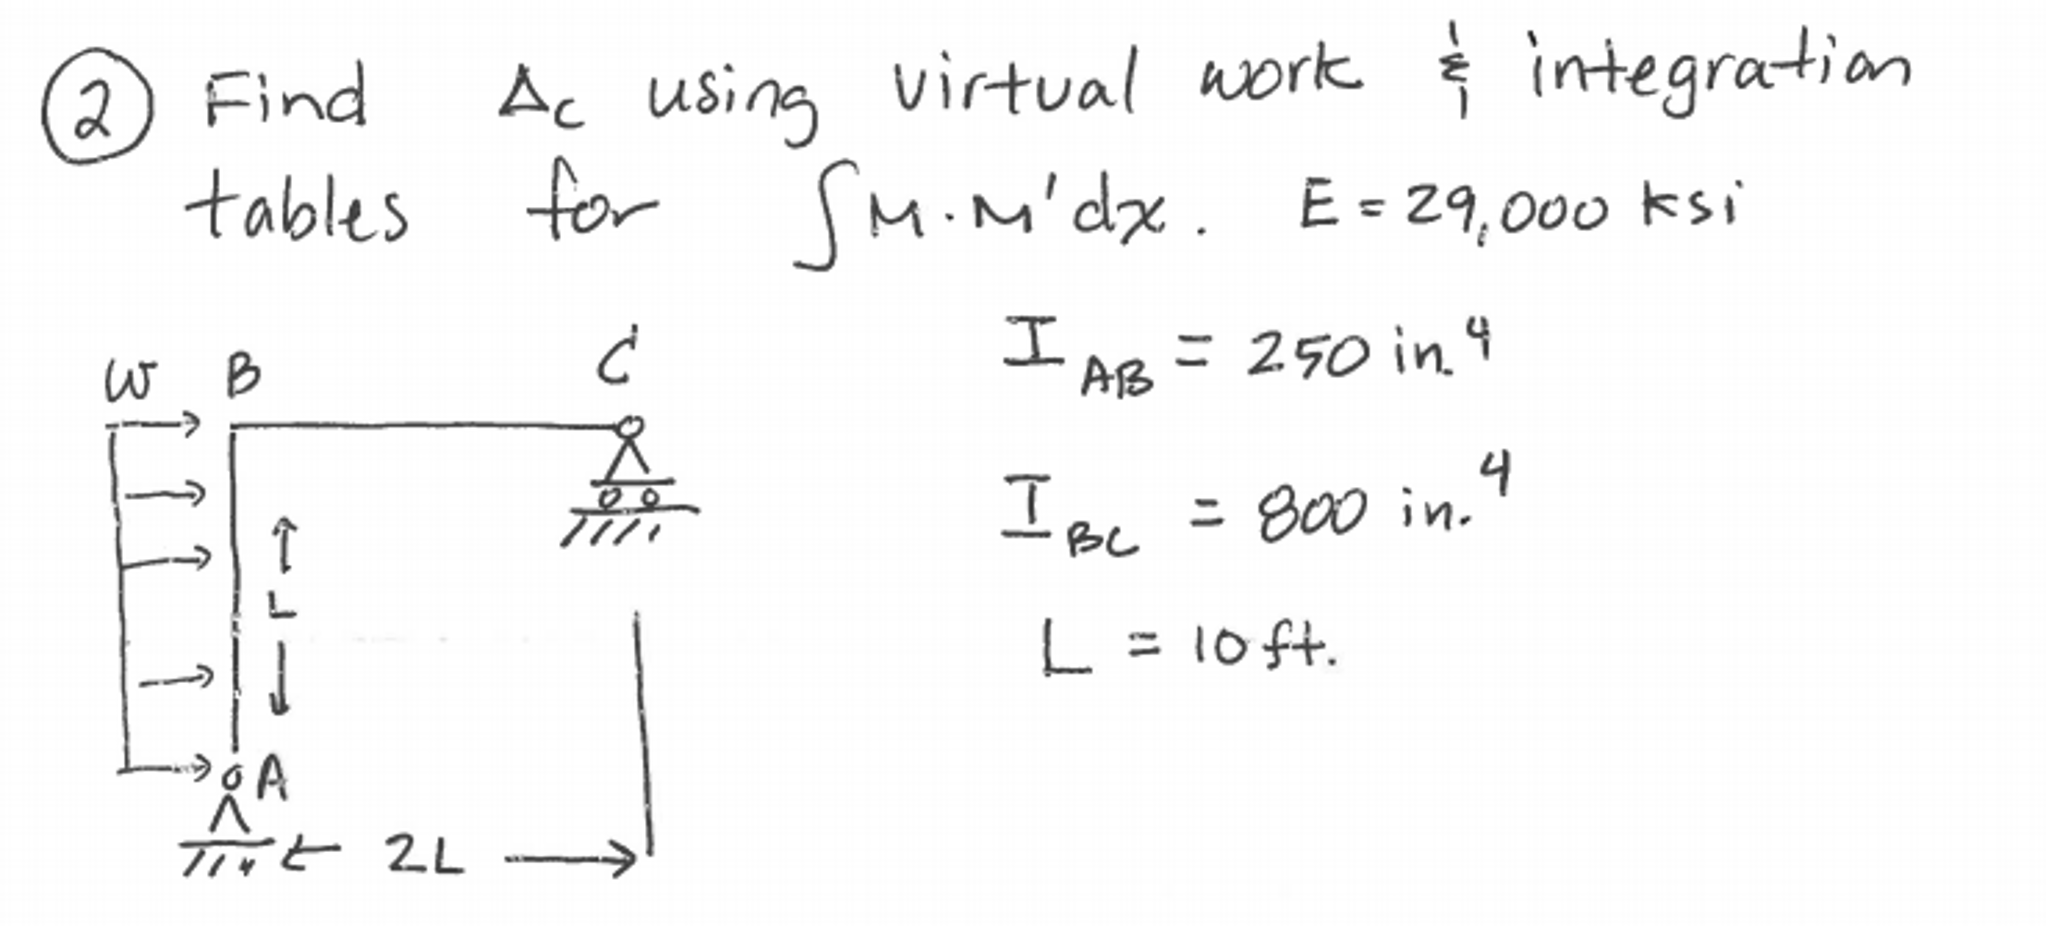 ② Find Δc using virtual work & integration
tables for ∫M·M'dx. E = 29,000 ksi
W B C
I_AB = 250 in.⁴
I_BC = 800 in.⁴
L
L = 10 ft.
A
2L